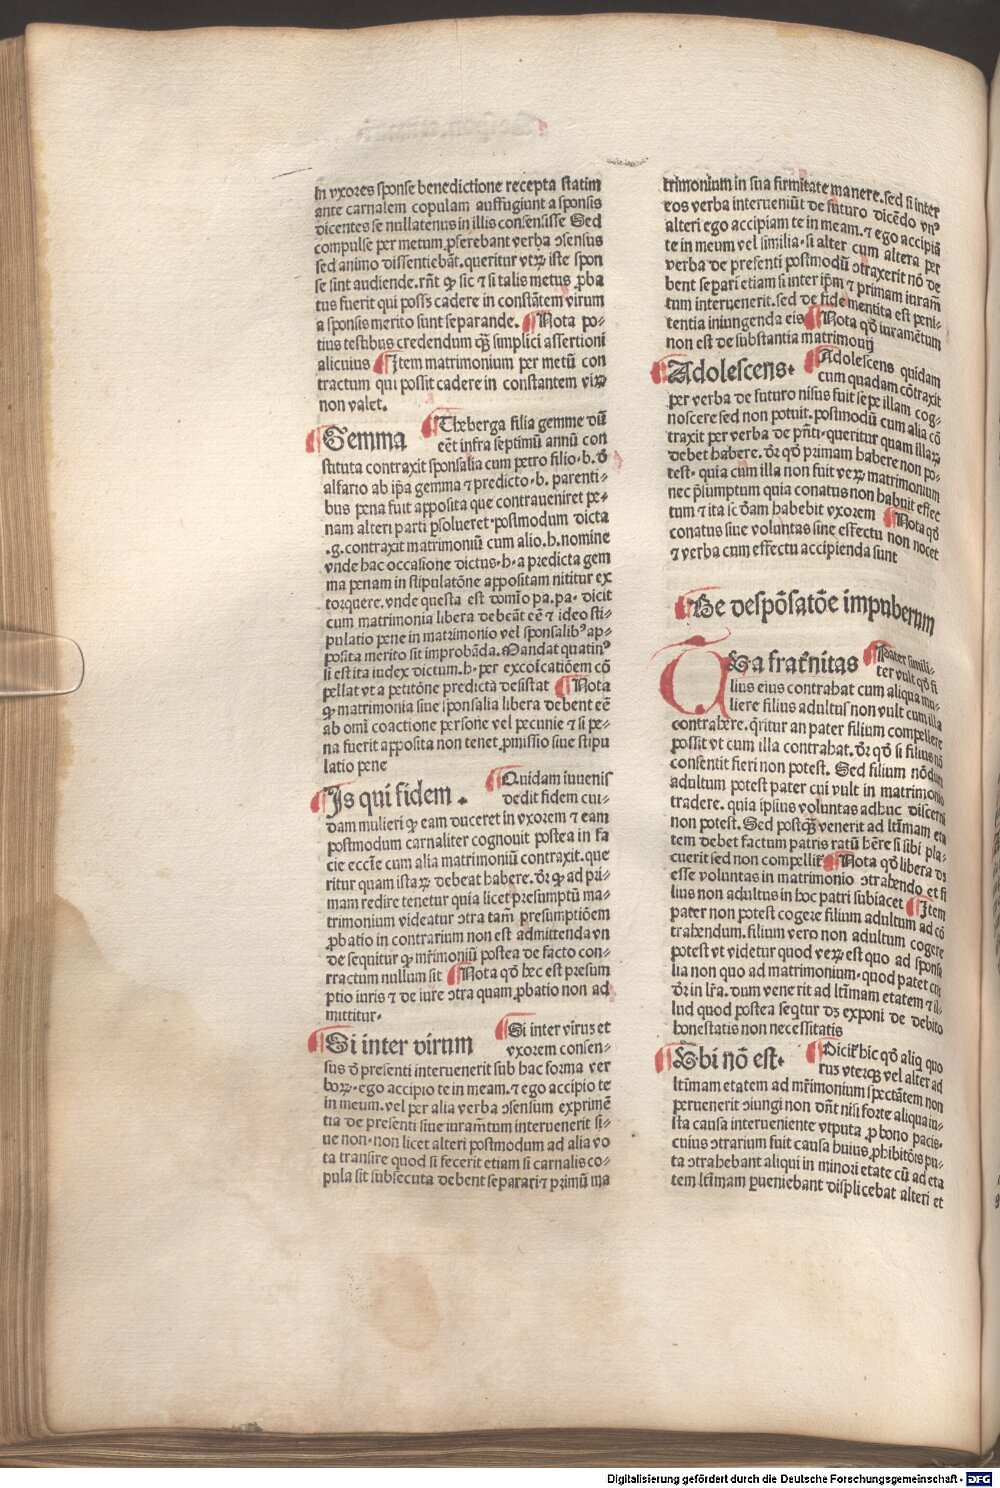 in vxores sponse benedictione recepta statim
ante carnalem copulam auffugiunt a sponsis
dicentes se nullatenus in illis consensisse Sed
compulse per metum ꝓferebant verba ɔsensus
sed animo dissentiebāt. queritur vtꝝ iste spon
se sint audiende. rñt ꝙ sic ⁊ si talis metus ꝓba
tus fuerit qui possꝫ cadere in constātem virum
a sponsis merito sunt separande. ¶ Nota po⸗
tius testibus credendum qȝ̃ simplici assertioni
alicuius ¶ Item matrimonium per metū con
tractum qui possit cadere in constantem viꝝ
non valet.
¶ Gemma ¶ Theberga filia gemme dū
eēt infra septimū annū con
stituta contraxit sponsalia cum petro filio. b. ō
alfario ab ip̄a gemma ⁊ predicto. b. parenti⸗
bus pena fuit apposita que contraueniret pe⸗
nam alteri parti ꝑsolueret. postmodum dicta
.g. contraxit matrimoniū cum alio .h. nomine
vnde hac occasione dictus. h. a predicta gem
ma penam in stipulatōne appositam nititur ex
torquere. vnde questa est domīo pa. pa. dicit
cum matrimonia libera debeāt eē ⁊ ideo sti⸗
pulatio pene in matrimonio vel sponsalibꝰ ap⸗
posita merito sit improbāda. Mandat quatinꝰ
si est ita iudex dictum. h. per excoīcatiōem cō
pellat vt a petitōne predicta desistat ¶ Nota
ꝙ matrimonia siue sponsalia libera debent eē
ab omī coactione persone vel pecunie ⁊ si pe⸗
na fuerit apposita non tenet ꝓmissio siue stipu
latio pene
¶ Is qui fidem . ¶ Quidam iuuenis
dedit fidem cui⸗
dam mulieri ꝙ eam duceret in vxorem ⁊ eam
postmodum carnaliter cognouit postea in fa
cie eccl̄ie cum alia matrimoniū contraxit. que
ritur quam istaꝝ debeat habere. ōr ꝙ ad pri⸗
mam redire tenetur quia licet presumptū ma⸗
trimonium videatur ɔtra tam̄ presumptiōem
ꝓbatio in contrarium non est admittenda vn
de sequitur ꝙ mr̄imoniū postea de facto con⸗
tractum nullum sit ¶ Nota qō hec est presum
ptio iuris ⁊ de iure ɔtra quam ꝓbatio non ad
mittitur.
¶ Si inter virum ¶ Si inter viruꝫ et
vxorem consen⸗
sus ō presenti interuenerit sub hac forma ver
boꝝ. ego accipio te in meam. ⁊ ego accipio te
in meum. vel per alia verba ɔsensum exprimē
tia de presenti siue iuram̄tum interuenerit si⸗
ue non. non licet alteri postmodum ad alia vo
ta transire quod si fecerit etiam si carnalis co⸗
pula sit subsecuta debent separari ⁊ primū ma
trimonium in sua firmitate manere. sed si inter
eos verba interueniūt de futuro dicēdo vnꝰ
alteri ego accipiam te in meam. ⁊ ego accipiā
te in meum vel similia. si alter cum altera per
verba de presenti postmodū ɔtraxerit nō de
bent separi etiam si inter ip̄m ⁊ primam iuram̄
tum interuenerit. sed de fide mentita est peni⸗
tentia iniungenda eis ¶ Nota qō iuramētum
non est de substantia matrimonij
¶ Adolescens. ¶ Adolescens quidam
cum quadam cōtraxit
per verba de futuro nisus fuit sepe illam cog⸗
noscere sed non potuit. postmodū cum alia cō
traxit per verba de pn̄ti. queritur quam illaꝝ
debet habere. ōr qō primam habere non po⸗
test. quia cum illa non fuit veꝝ matrimonium
nec p̄sumptum quia conatus non habuit effec
tum ⁊ ita sc̄ōam habebit vxorem ¶ Nota qō
conatus siue voluntas sine effectu non nocet
⁊ verba cum effectu accipienda sunt
¶ De despōsatōe impuberum
Tua frat̄nitas ¶ Pater simili⸗
ter vult qō fi
lius eius contrahat cum aliqua mu⸗
liere filius adultus non vult cum illa
contrahere. q̄ritur an pater filium compellere
possit vt cum illa contrahat. ōr qō si filius nō
consentit fieri non potest. Sed filium nōdum
adultum potest pater cui vult in matrimonio
tradere. quia ipsius voluntas adhuc discerni
non potest. Sed postqȝ̃ venerit ad ltīmam eta
tem debet factum patris ratū hēre si sibi pla⸗
cuerit sed non compellit̄ ¶ Nota qō libera dꝫ
esse voluntas in matrimonio ɔtrahendo et fi
lius non adultus in hoc patri subiacet ¶ Item
pater non potest cogere filium adultum ad cō
trahendum. filium vero non adultum cogere
potest vt videtur quod veꝝ est quo ad sponsa
lia non quo ad matrimonium. quod patet cuꝫ
ōr in lr̄a. dum venerit ad ltīmam etatem ⁊ il⸗
lud quod postea seqtur dꝫ exponi de debito
honestatis non necessitatis
¶ Vbi nō est. ¶ Dicit̄ hic qō aliq̄ quo
ruꝫ vterqꝫ vel alter ad
ltīmam etatem ad mr̄imonium spectātem non
peruenerit ɔiungi non dn̄t nisi forte aliqua iu⸗
sta causa interueniente vtputa ꝓ bono pacis.
cuius ɔtrarium fuit causa huius ꝓhibitōis pu⸗
ta ɔtrahebant aliqui in minori etate cū ad eta
tem ltīmam ꝑueniebant displicebat alteri et
Digitalisierung gefördert durch die Deutsche Forschungsgemeinschaft - DFG